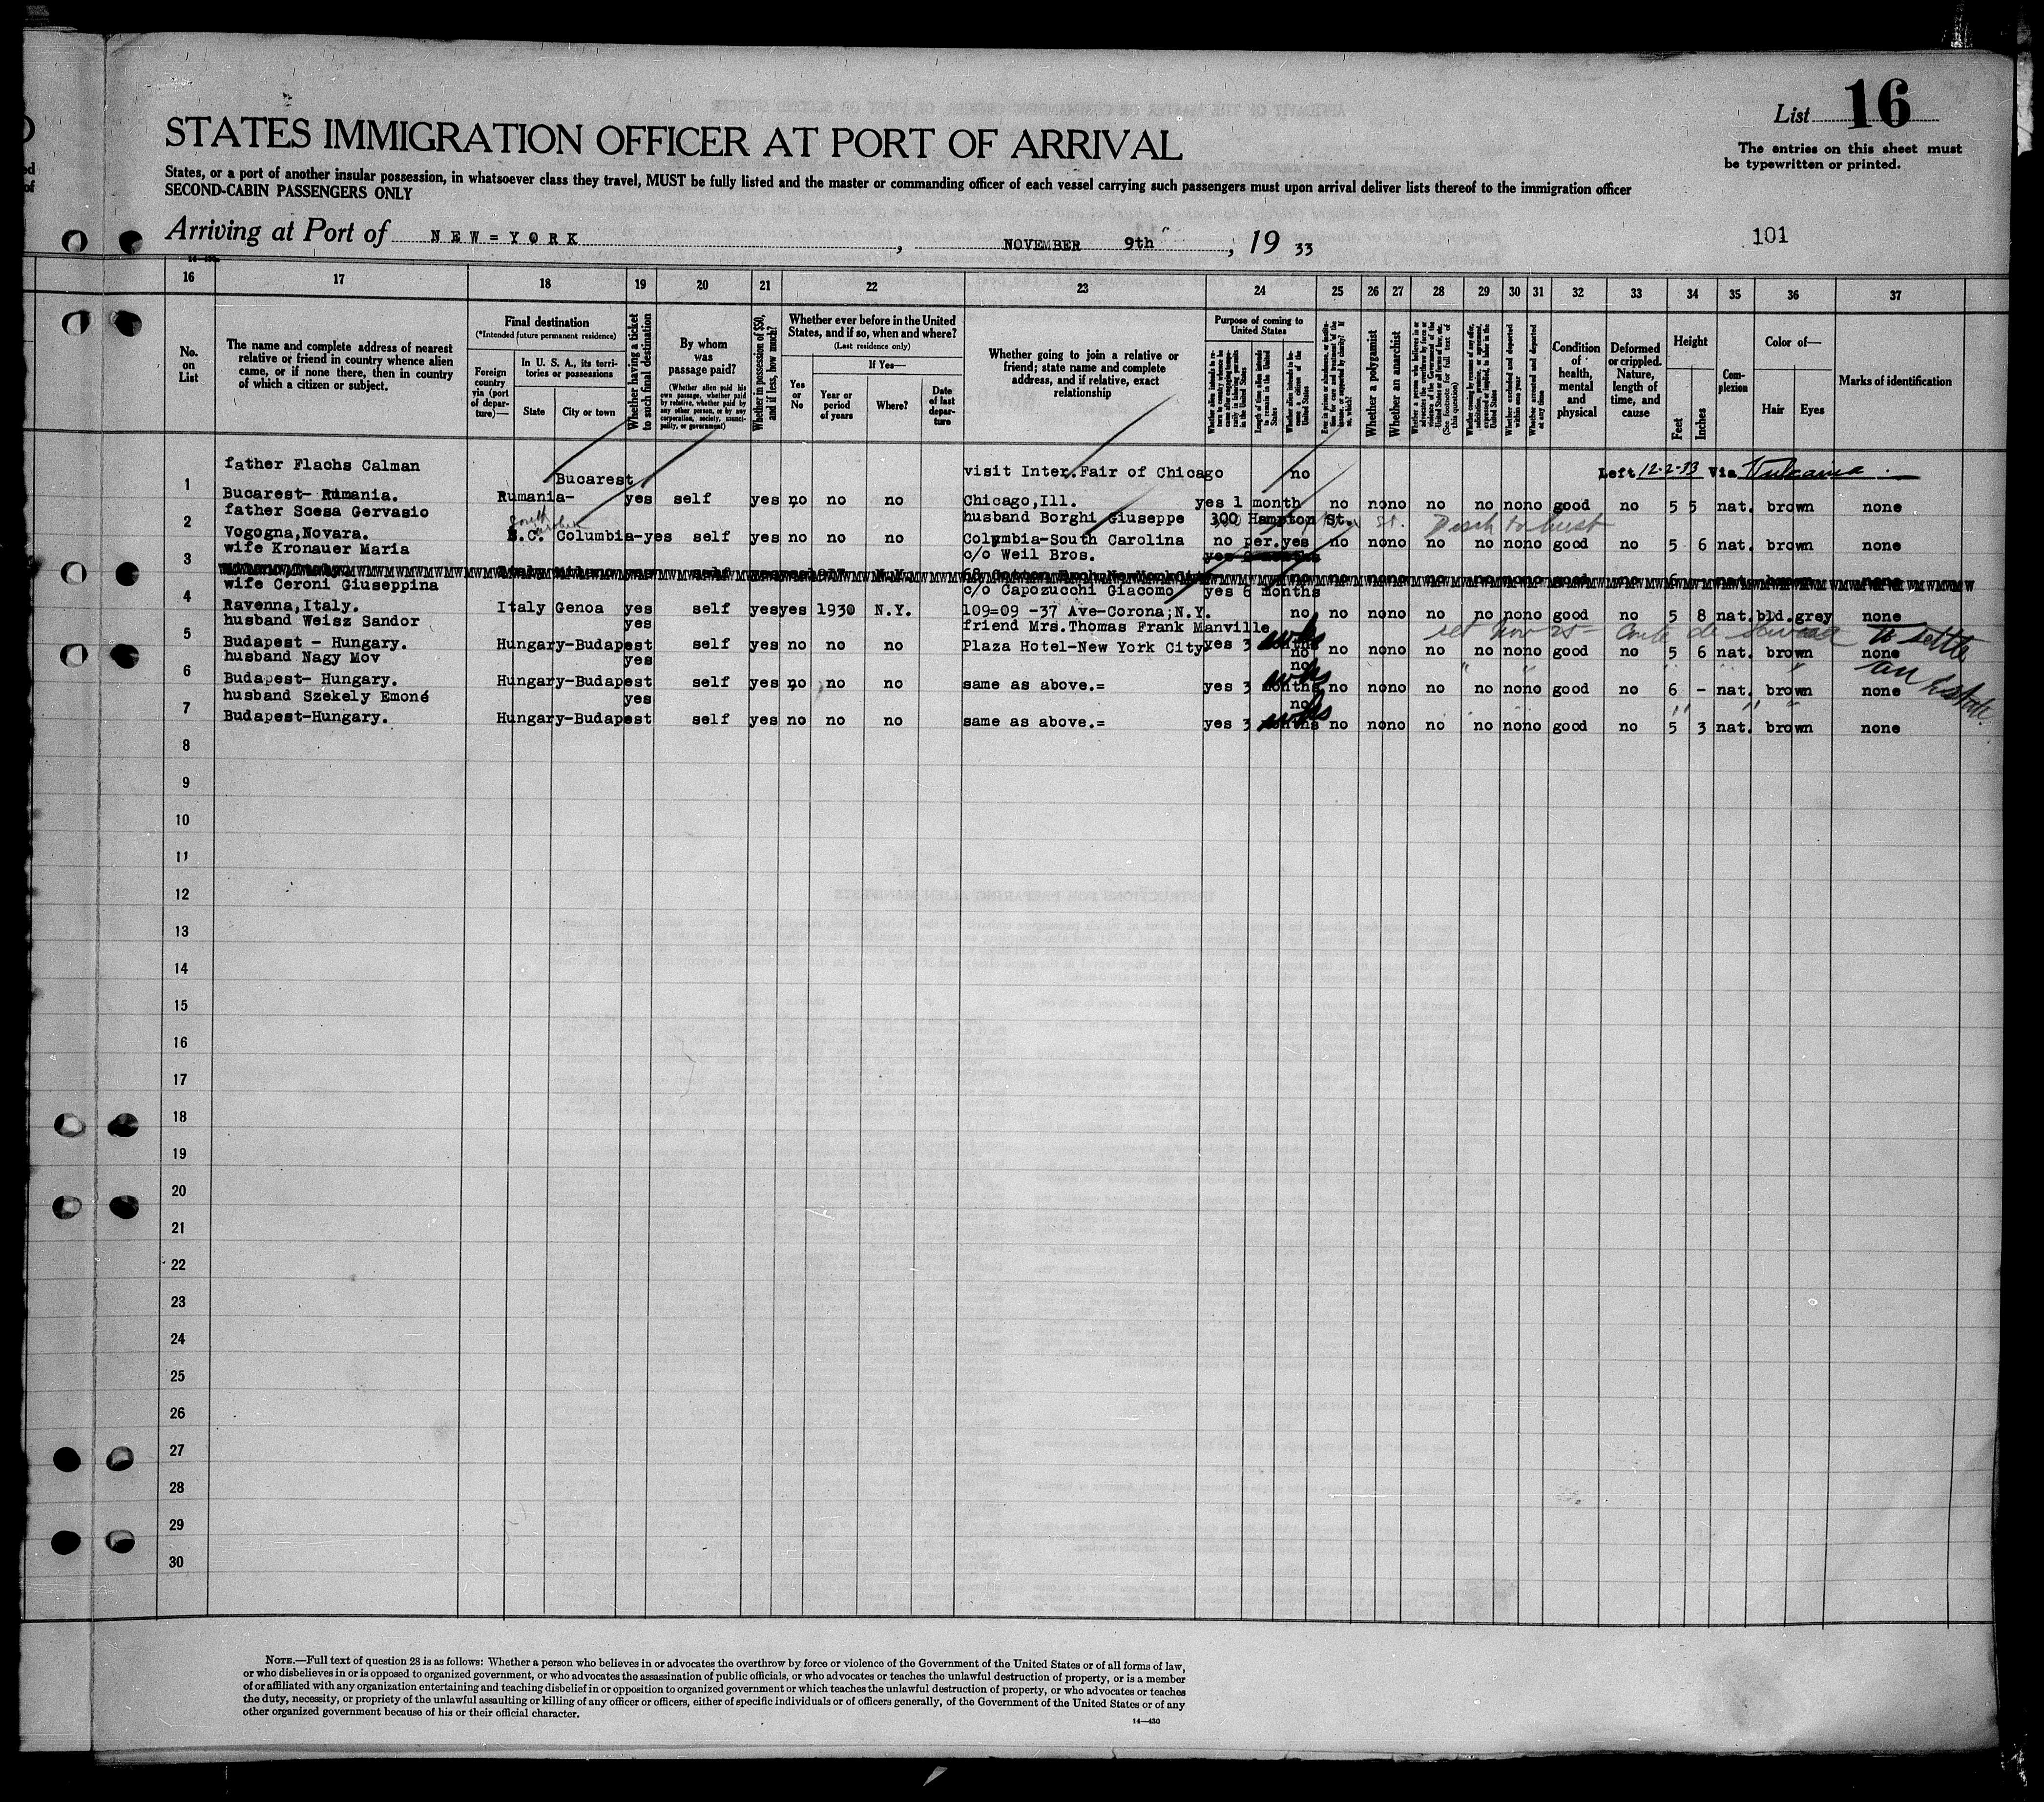 List 16
The entries on this sheet must
be typewritten or printed.
STATES IMMIGRATION OFFICER AT PORT OF ARRIVAL
States, or a port of another insular possession, in whatsoever class they travel, MUST be fully listed and the master or commanding officer of each vessel carrying such passengers must upon arrival deliver lists thereof to the immigration officer
SECOND-CABIN PASSENGERS ONLY
Arriving at Port of NEW=YORK, NOVEMBER 9th, 19 33
101
16 17 18 19 20 21 22 23 24 25 26 27 28 29 30 31 32 33 34 35 36 37
No. on List
The name and complete address of nearest
relative or friend in country whence alien
came, or if none there, then in country
of which a citizen or subject.
Final destination
(*Intended future permanent residence)
Foreign country via (port of departure)—
In U. S. A., its territories or possessions
State
City or town
Whether having a ticket to such final destination
By whom was passage paid?
(Whether alien paid his own passage, whether paid by relative, whether paid by any other person, or by any corporation, society, municipality, or government)
Whether in possession of $50, and if less, how much?
Whether ever before in the United States, and if so, when and where?
(Last residence only)
Yes or No
If Yes—
Year or period of years
Where?
Date of last departure
Whether going to join a relative or
friend; state name and complete
address, and if relative, exact
relationship
Purpose of coming to United States
Length of time alien intends to remain in the United States
Whether alien intends to become a citizen of the United States
Whether a polygamist
Whether an anarchist
(See footnote for full text of this question)
Whether excluded and deported within one year
Whether arrested and deported at any time
Condition of health, mental and physical
Deformed or crippled. Nature, length of time, and cause
Height
Feet
Inches
Complexion
Color of—
Hair
Eyes
Marks of identification
father Flachs Calman Bucarest visit Inter.Fair of Chicago no Left 12-2-33 Via Vulcania
1 Bucarest- Rumania. Rumania- yes self yes no no no Chicago,Ill. yes 1 month no no no no no no no good no 5 5 nat. brown none
father Scesa Gervasio South Carolina husband Borghi Giuseppe 300 Hampton St. St.
2 Vogogna,Novara. S.C. Columbia-yes self yes no no no Columbia-South Carolina no per.yes no no no no no no no good no 5 6 nat. brown none
wife Kronauer Maria c/o Weil Bros.
3
wife Ceroni Giuseppina c/o Capozucchi Giacomo yes 6 months
4 Ravenna,Italy. Italy Genoa yes self yes yes 1930 N.Y. 109=09 -37 Ave-Corona;N.Y. no no no no no no no no good no 5 8 nat. bld. grey none
husband Weisz Sandor yes friend Mrs.Thomas Frank Manville
5 Budapest - Hungary. Hungary-Budapest self yes no no no Plaza Hotel-New York City yes 3 months wks no no no no no no no no good no 5 6 nat. brown none
To settle
husband Nagy Mov yes no
6 Budapest- Hungary. Hungary-Budapest self yes no no no same as above.= yes 3 months wks no no no no no no no good no 6 - nat. brown none
an Estate.
husband Szekely Emoné yes no
7 Budapest-Hungary. Hungary-Budapest self yes no no no same as above.= yes 3 months wks no no no no no no no good no 5 3 nat. brown none
8
9
10
11
12
13
14
15
16
17
18
19
20
21
22
23
24
25
26
27
28
29
30
NOTE.—Full text of question 28 is as follows: Whether a person who believes in or advocates the overthrow by force or violence of the Government of the United States or of all forms of law,
or who disbelieves in or is opposed to organized government, or who advocates the assassination of public officials, or who advocates or teaches the unlawful destruction of property, or is a member
of or affiliated with any organization entertaining and teaching disbelief in or opposition to organized government or which teaches the unlawful destruction of property, or who advocates or teaches
the duty, necessity, or propriety of the unlawful assaulting or killing of any officer or officers, either of specific individuals or of officers generally, of the Government of the United States or of any
other organized government because of his or their official character.
14—430